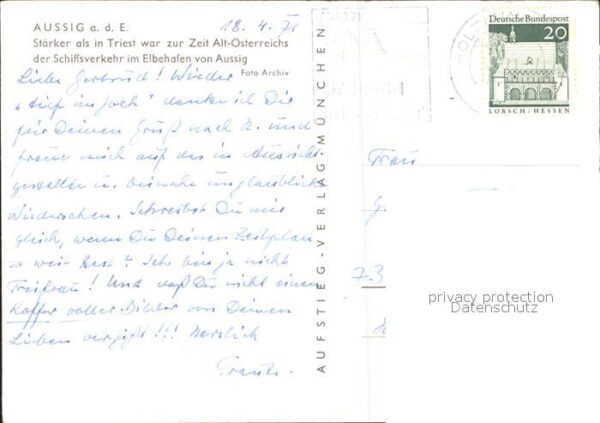 AUSSIG a. d. E. 18. 4. 71
Stärker als in Triest war zur Zeit Alt-Österreichs
der Schiffsverkehr im Elbehafen von Aussig
Foto Archiv
Liebe ! Wieder
"tief im Joch" danke ich Dir
für Deinen Gruß nach und
freue mich auf das in Aussicht
gestellte u. beinahe unglaubliche
Wiedersehen. Schreibst Du mir
gleich, wenn Du Deinen Zeitplan
so weit hast? Ich bin ja nicht
Freifrau! Und daß Du nicht einen
Koffer voller Bilder von Deinen
Lieben vergißt!!! Herzlich
AUFSTIEG-VERLAG MÜNCHEN
Deutsche Bundespost
20
LORSCH/HESSEN
Frau
73
privacy protection
Datenschutz